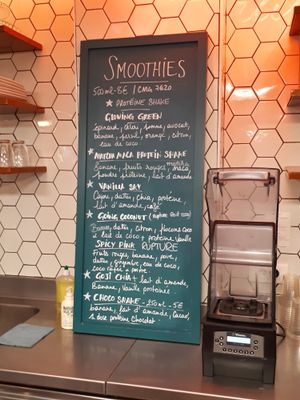 SMOOTHIES
500ml - 8€ /
★ PROTÉINE SHAKE
GLOWING GREEN
épinard, céleri, pomme, avocat,
banane, persil, orange, citron,
eau de coco
★ MATCHA MACA PROTEIN SHAKE
Banane, fruits rouges, maca,
poudre protéine, lait d'amande
★ VANILLA SKY
dattes, chia, protéine,
lait d'amande, café
★ GOING COCONUT (rupture
Banane, dattes, citron, flocons coco
lait de coco + protéine vanille
SPICY PINK RUPTURE
Fruits rouges, banane, poire,
dattes, gingembre, eau de coco,
coco râpée + poivre
★ GOJI CHIA + lait d'amande,
Banane, Vanille protéinée
★ CHOCO SHAKE - 250ml - 5€
banane, lait d'amande, Cacao,
1 dose protéine Chocolat